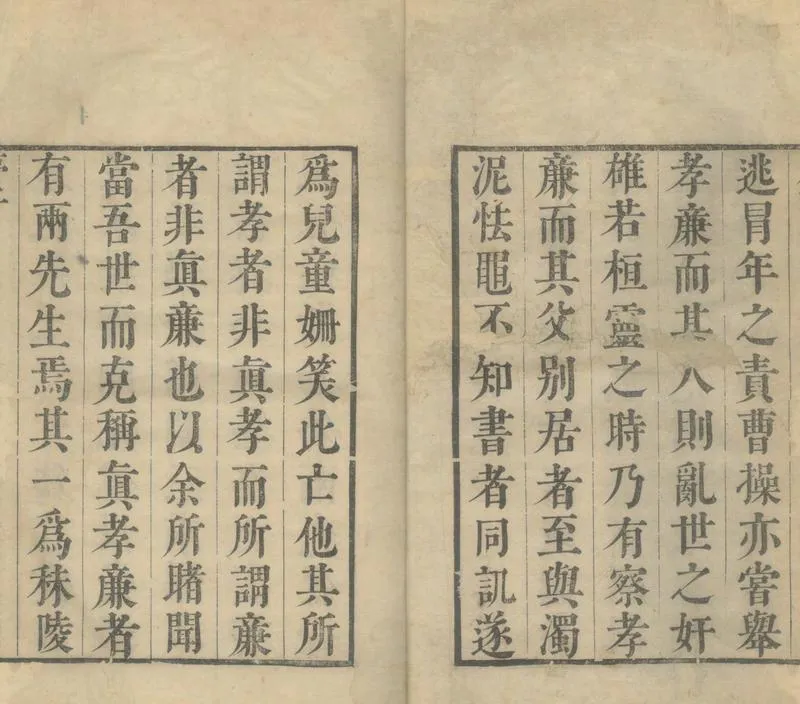 逃冐年之責曹操亦嘗舉
孝亷而其人則亂世之奸
雄若桓靈之時乃有察孝
亷而其父别居者至與濁
泥怯黽不知書者同訊遂
爲兒童姍笑此亡他其所
謂孝者非眞孝而所謂亷
者非眞亷也以余所睹聞
當吾世而克稱眞孝亷者
有兩先生焉其一爲秣陵